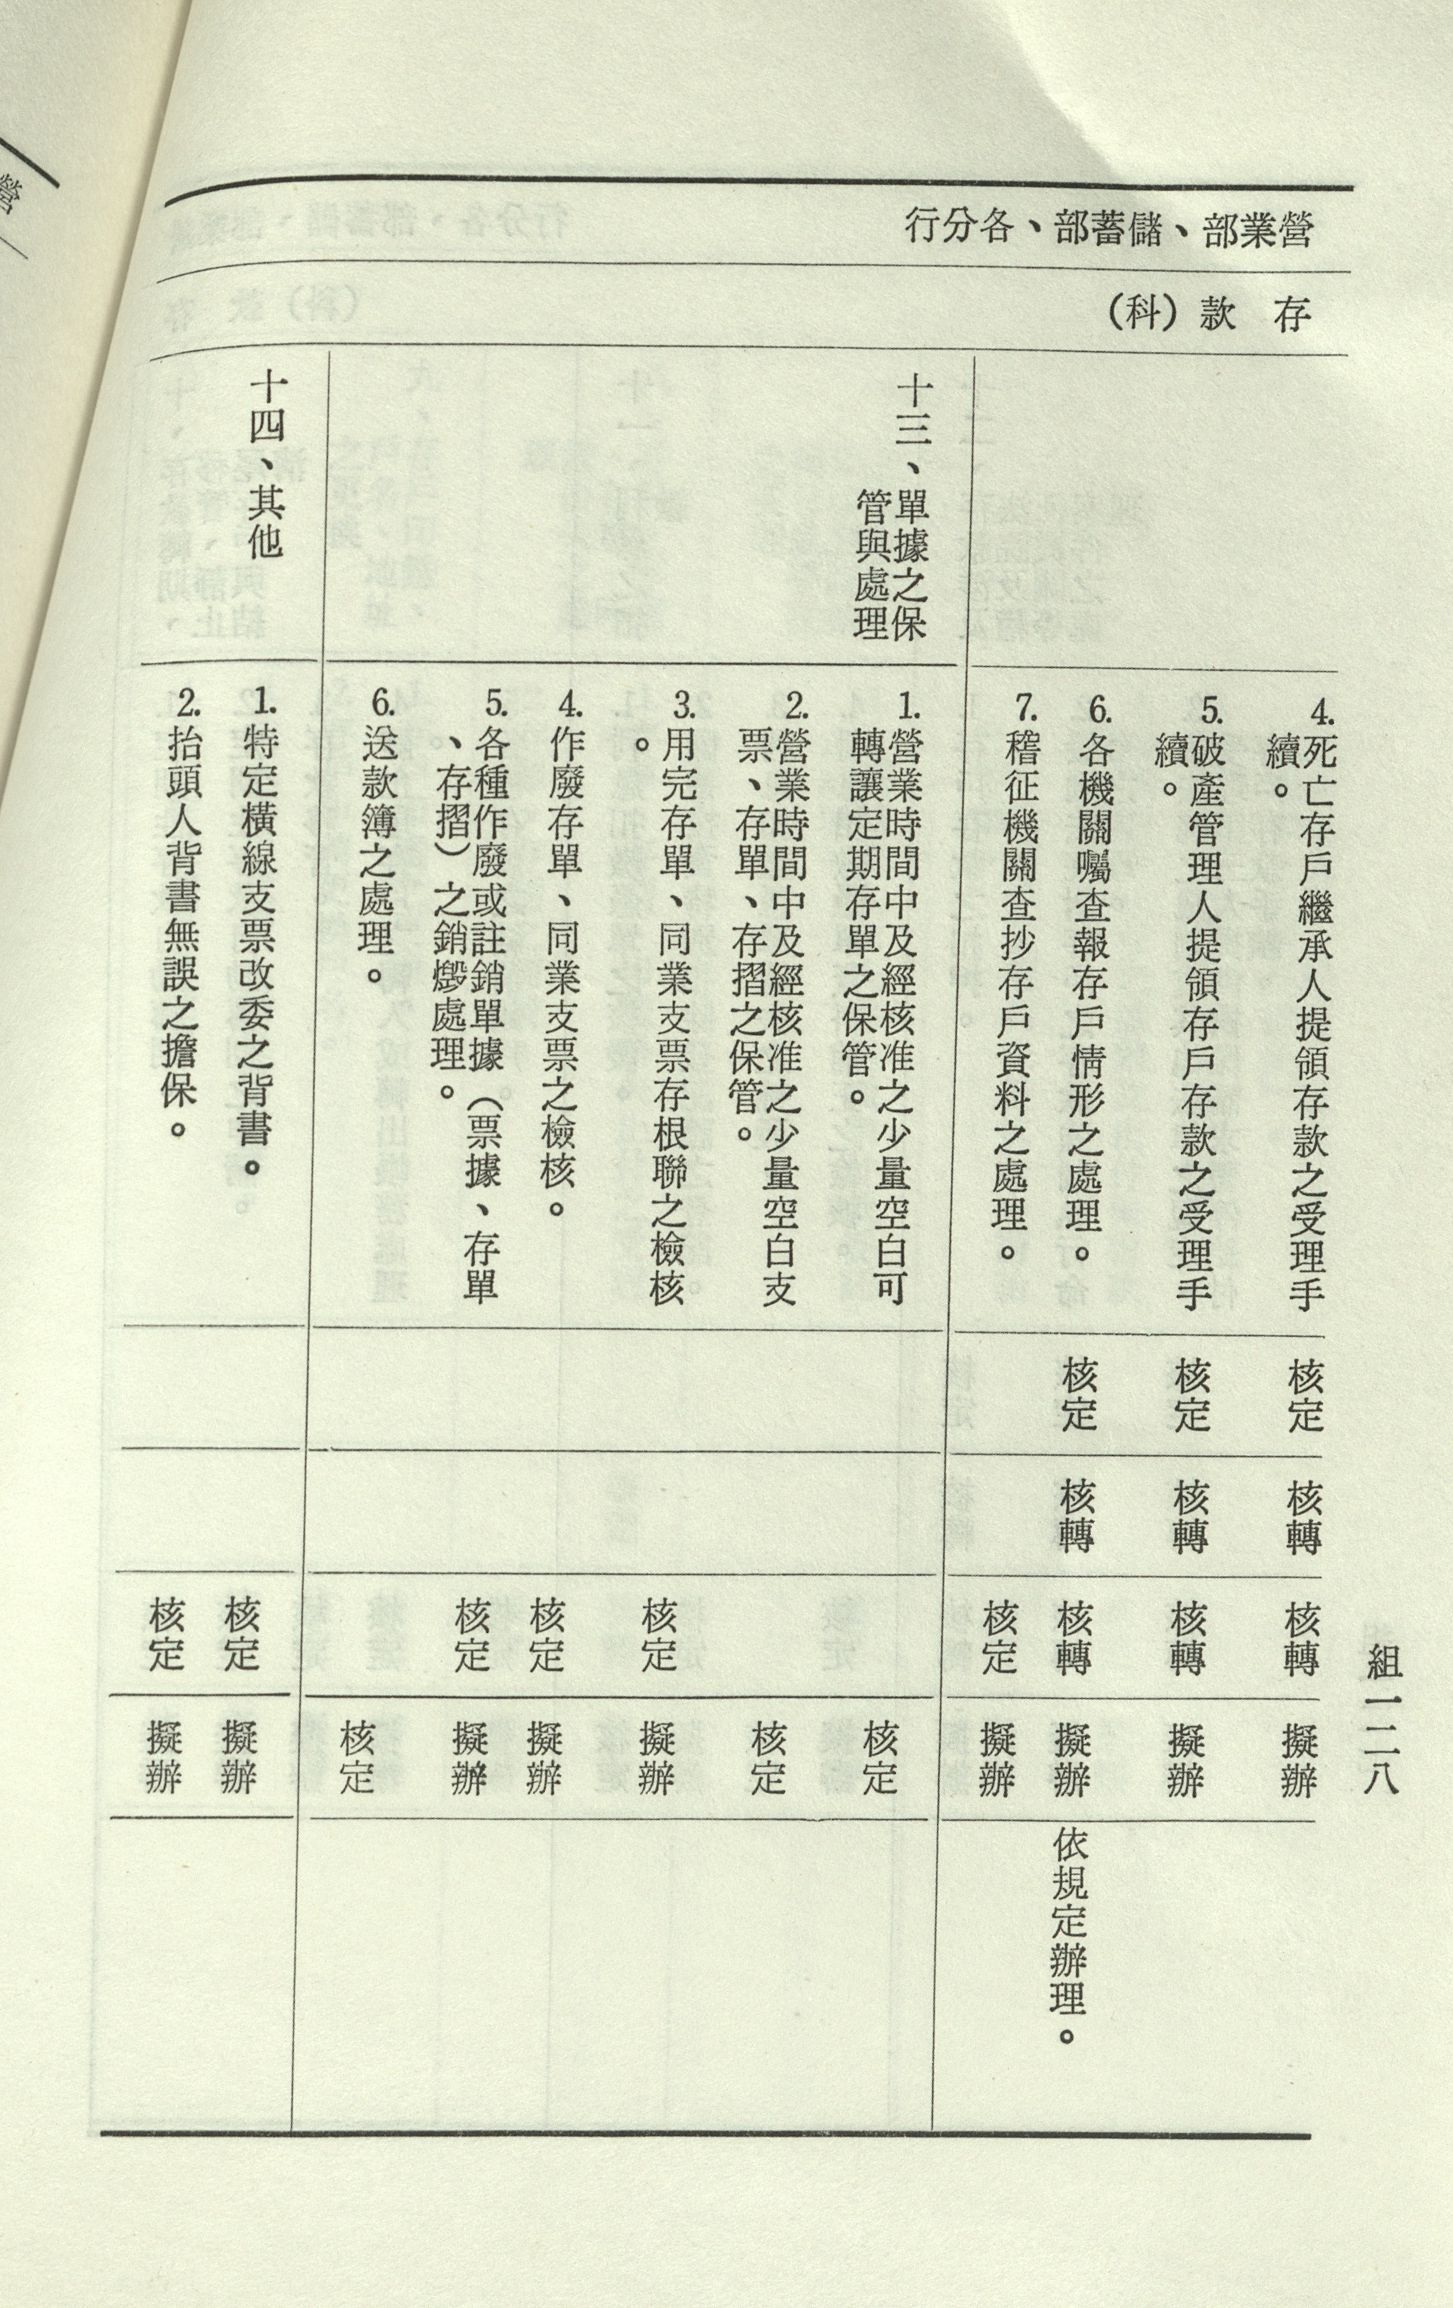 營業部、儲蓄部、各分行
存　款（科）
4.死亡存戶繼承人提領存款之受理手
續。
核定
核轉
核轉
擬辦
5.破產管理人提領存戶存款之受理手
續。
核定
核轉
核轉
擬辦
6.各機關囑查報存戶情形之處理。
核定
核轉
核轉
擬辦
依規定辦理。
7.稽征機關查抄存戶資料之處理。
核定
擬辦
十三、單據之保
管與處理
1.營業時間中及經核准之少量空白可
轉讓定期存單之保管。
核定
2.營業時間中及經核准之少量空白支
票、存單、存摺之保管。
核定
3.用完存單、同業支票存根聯之檢核
。
核定
擬辦
4.作廢存單、同業支票之檢核。
核定
擬辦
5.各種作廢或註銷單據（票據、存單
、存摺）之銷燬處理。
核定
擬辦
6.送款簿之處理。
核定
十四、其他
1.特定橫線支票改委之背書。
核定
擬辦
2.抬頭人背書無誤之擔保。
核定
擬辦
組一二八
營